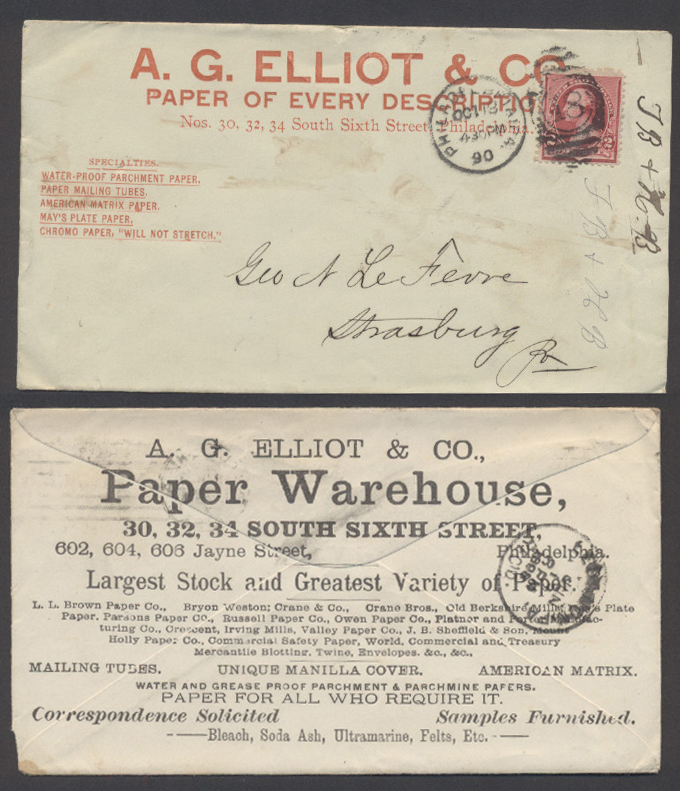 A. G. ELLIOT & CO
PAPER OF EVERY DESCRIPTIO
Nos. 30, 32, 34 South Sixth Street, Philadelphia.
SPECIALTIES.
WATER-PROOF PARCHMENT PAPER,
PAPER MAILING TUBES,
AMERICAN MATRIX PAPER,
MAY'S PLATE PAPER,
CHROMO PAPER, "WILL NOT STRETCH."
PHILADELPHIA, PA.
OCT 15
430 PM
90
Geo N Le Fevre
Strasburg
Pa
A. G. ELLIOT & CO.,
Paper Warehouse,
30, 32, 34 SOUTH SIXTH STREET,
602, 604, 606 Jayne Street, Philadelphia.
Largest Stock and Greatest Variety of Paper.
L. L. Brown Paper Co., Bryon Weston; Crane & Co., Crane Bros., Old Berkshire Mills, Plate
Paper, Parsons Paper Co., Russell Paper Co., Owen Paper Co., Platner and Porter Manufac-
turing Co., Crescent, Irving Mills, Valley Paper Co., J. B. Sheffield & Son, Mount
Holly Paper Co., Commercial Safety Paper, World, Commercial and Treasury
Mercantile Blotting, Twine, Envelopes, &c., &c.,
MAILING TUBES. UNIQUE MANILLA COVER. AMERICAN MATRIX.
WATER AND GREASE PROOF PARCHMENT & PARCHMINE PAPERS.
PAPER FOR ALL WHO REQUIRE IT.
Correspondence Solicited Samples Furnished.
Bleach, Soda Ash, Ultramarine, Felts, Etc.